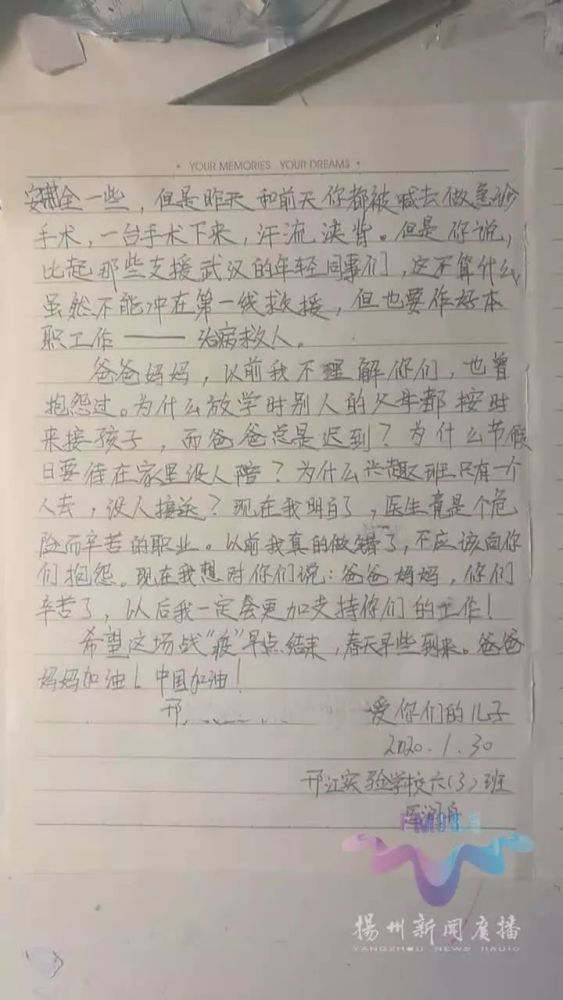 YOUR MEMORIES YOUR DREAMS
安全一些，但是昨天和前天你都被喊去做急诊
手术，一台手术下来，汗流浃背。但是你说，
比起那些支援武汉的年轻同事们，这不算什么
虽然不能冲在第一线救援，但也要作好本
职工作——治病救人。
爸爸妈妈，以前我不理解你们，也曾
抱怨过。为什么放学时别人的父母都按时
来接孩子，而爸爸总是迟到？为什么节假
日要待在家里没人陪？为什么兴趣班只有一个
人去，没人接送？现在我明白了，医生竟是个危
险而辛苦的职业。以前我真的做错了，不应该向你
们抱怨。现在我想对你们说：爸爸妈妈，你们
辛苦了，以后我一定会更加支持你们的工作！
希望这场战“疫”早点结束，春天早些到来。爸爸
妈妈加油！中国加油！
邗 爱你们的儿子
2020.1.30
邗江实验学校六(3)班
FM98.5
揚州新闻廣播
YANGZHOU NEWS RADIO